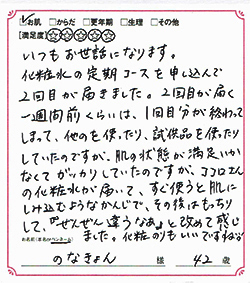 ☑お肌 □からだ □更年期 □生理 □その他
[満足度]☆☆☆☆☆
いつもお世話になります。
化粧水の定期コースを申し込んで
2回目が届きました。2回目が届く
一週間前くらいは、1回目分が終わって
しまって、他のを使ったり、試供品を使ったり
していたのですが、肌の状態が満足いか
なくてガッカリしていたのですが、ココロさん
の化粧水が届いて、すぐ使うと肌に
しみ込むようなかんじで、その後はもっちり
して、『ぜんぜん違うなあ』と改めて感じ
ました。化粧のりもいいですね
お名前(本名orペンネーム)
のなきょん 様 42歳